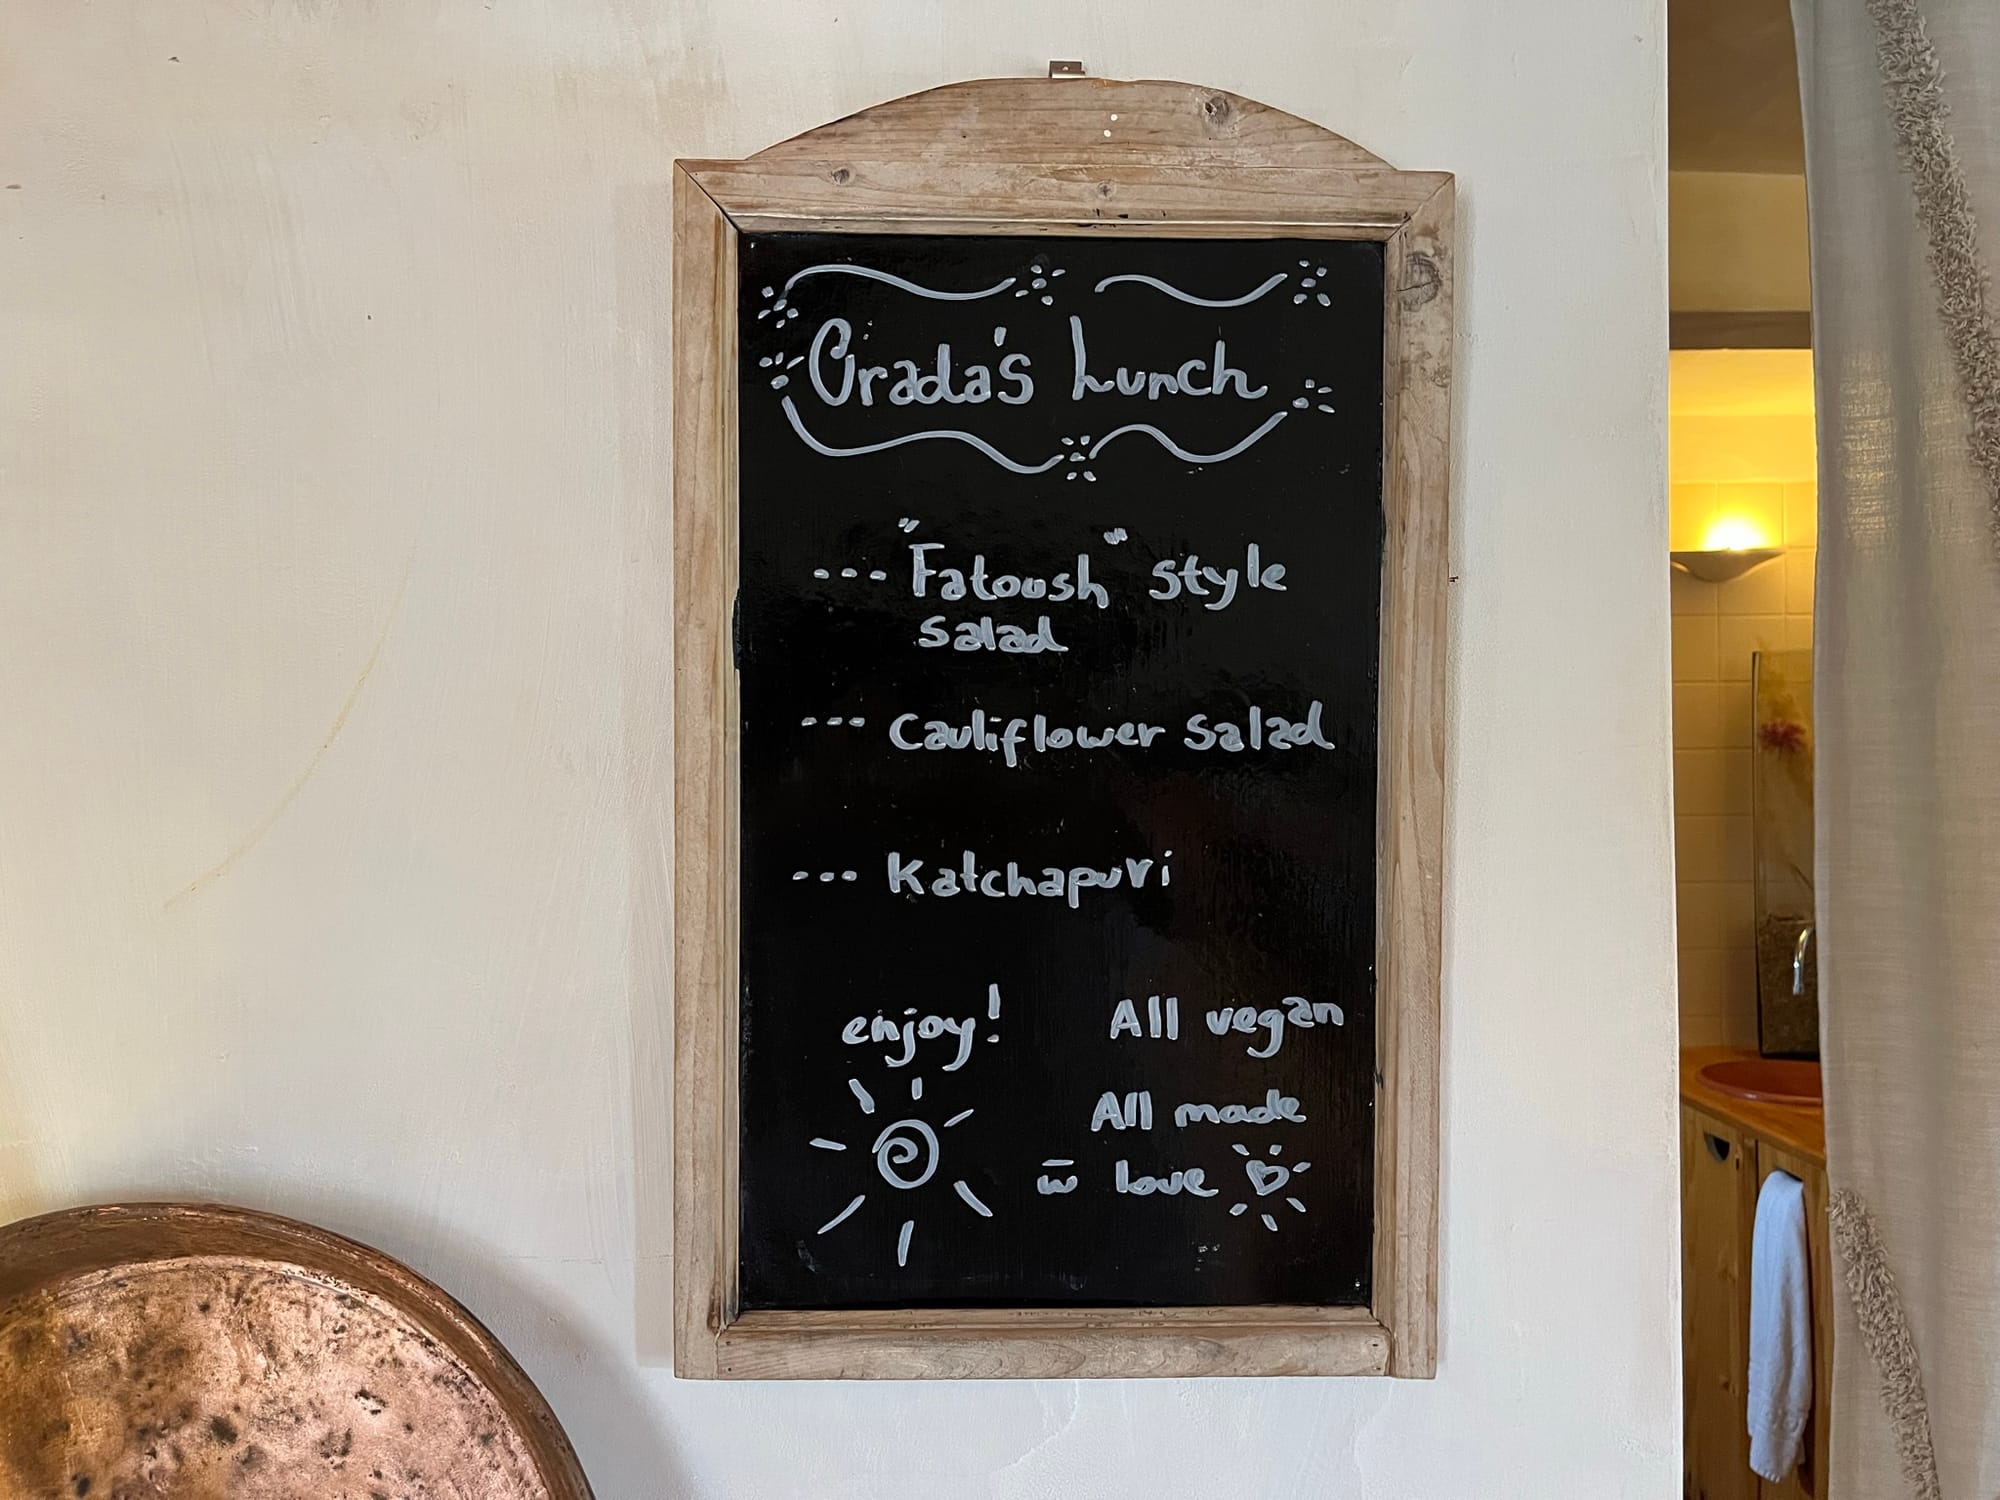 Orada's Lunch
--- "Fatoush" style
salad
--- Cauliflower salad
--- Katchapuri
enjoy!
All vegan
All made
w̄ love